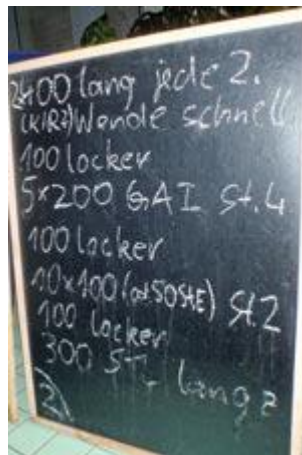 2400 lang jede 2.
(K/R?) Wende schnell
100 locker
5×200 GAI St.4
100 locker
10×100 (od 50StE) St2
100 locker
300 ST, lang
2